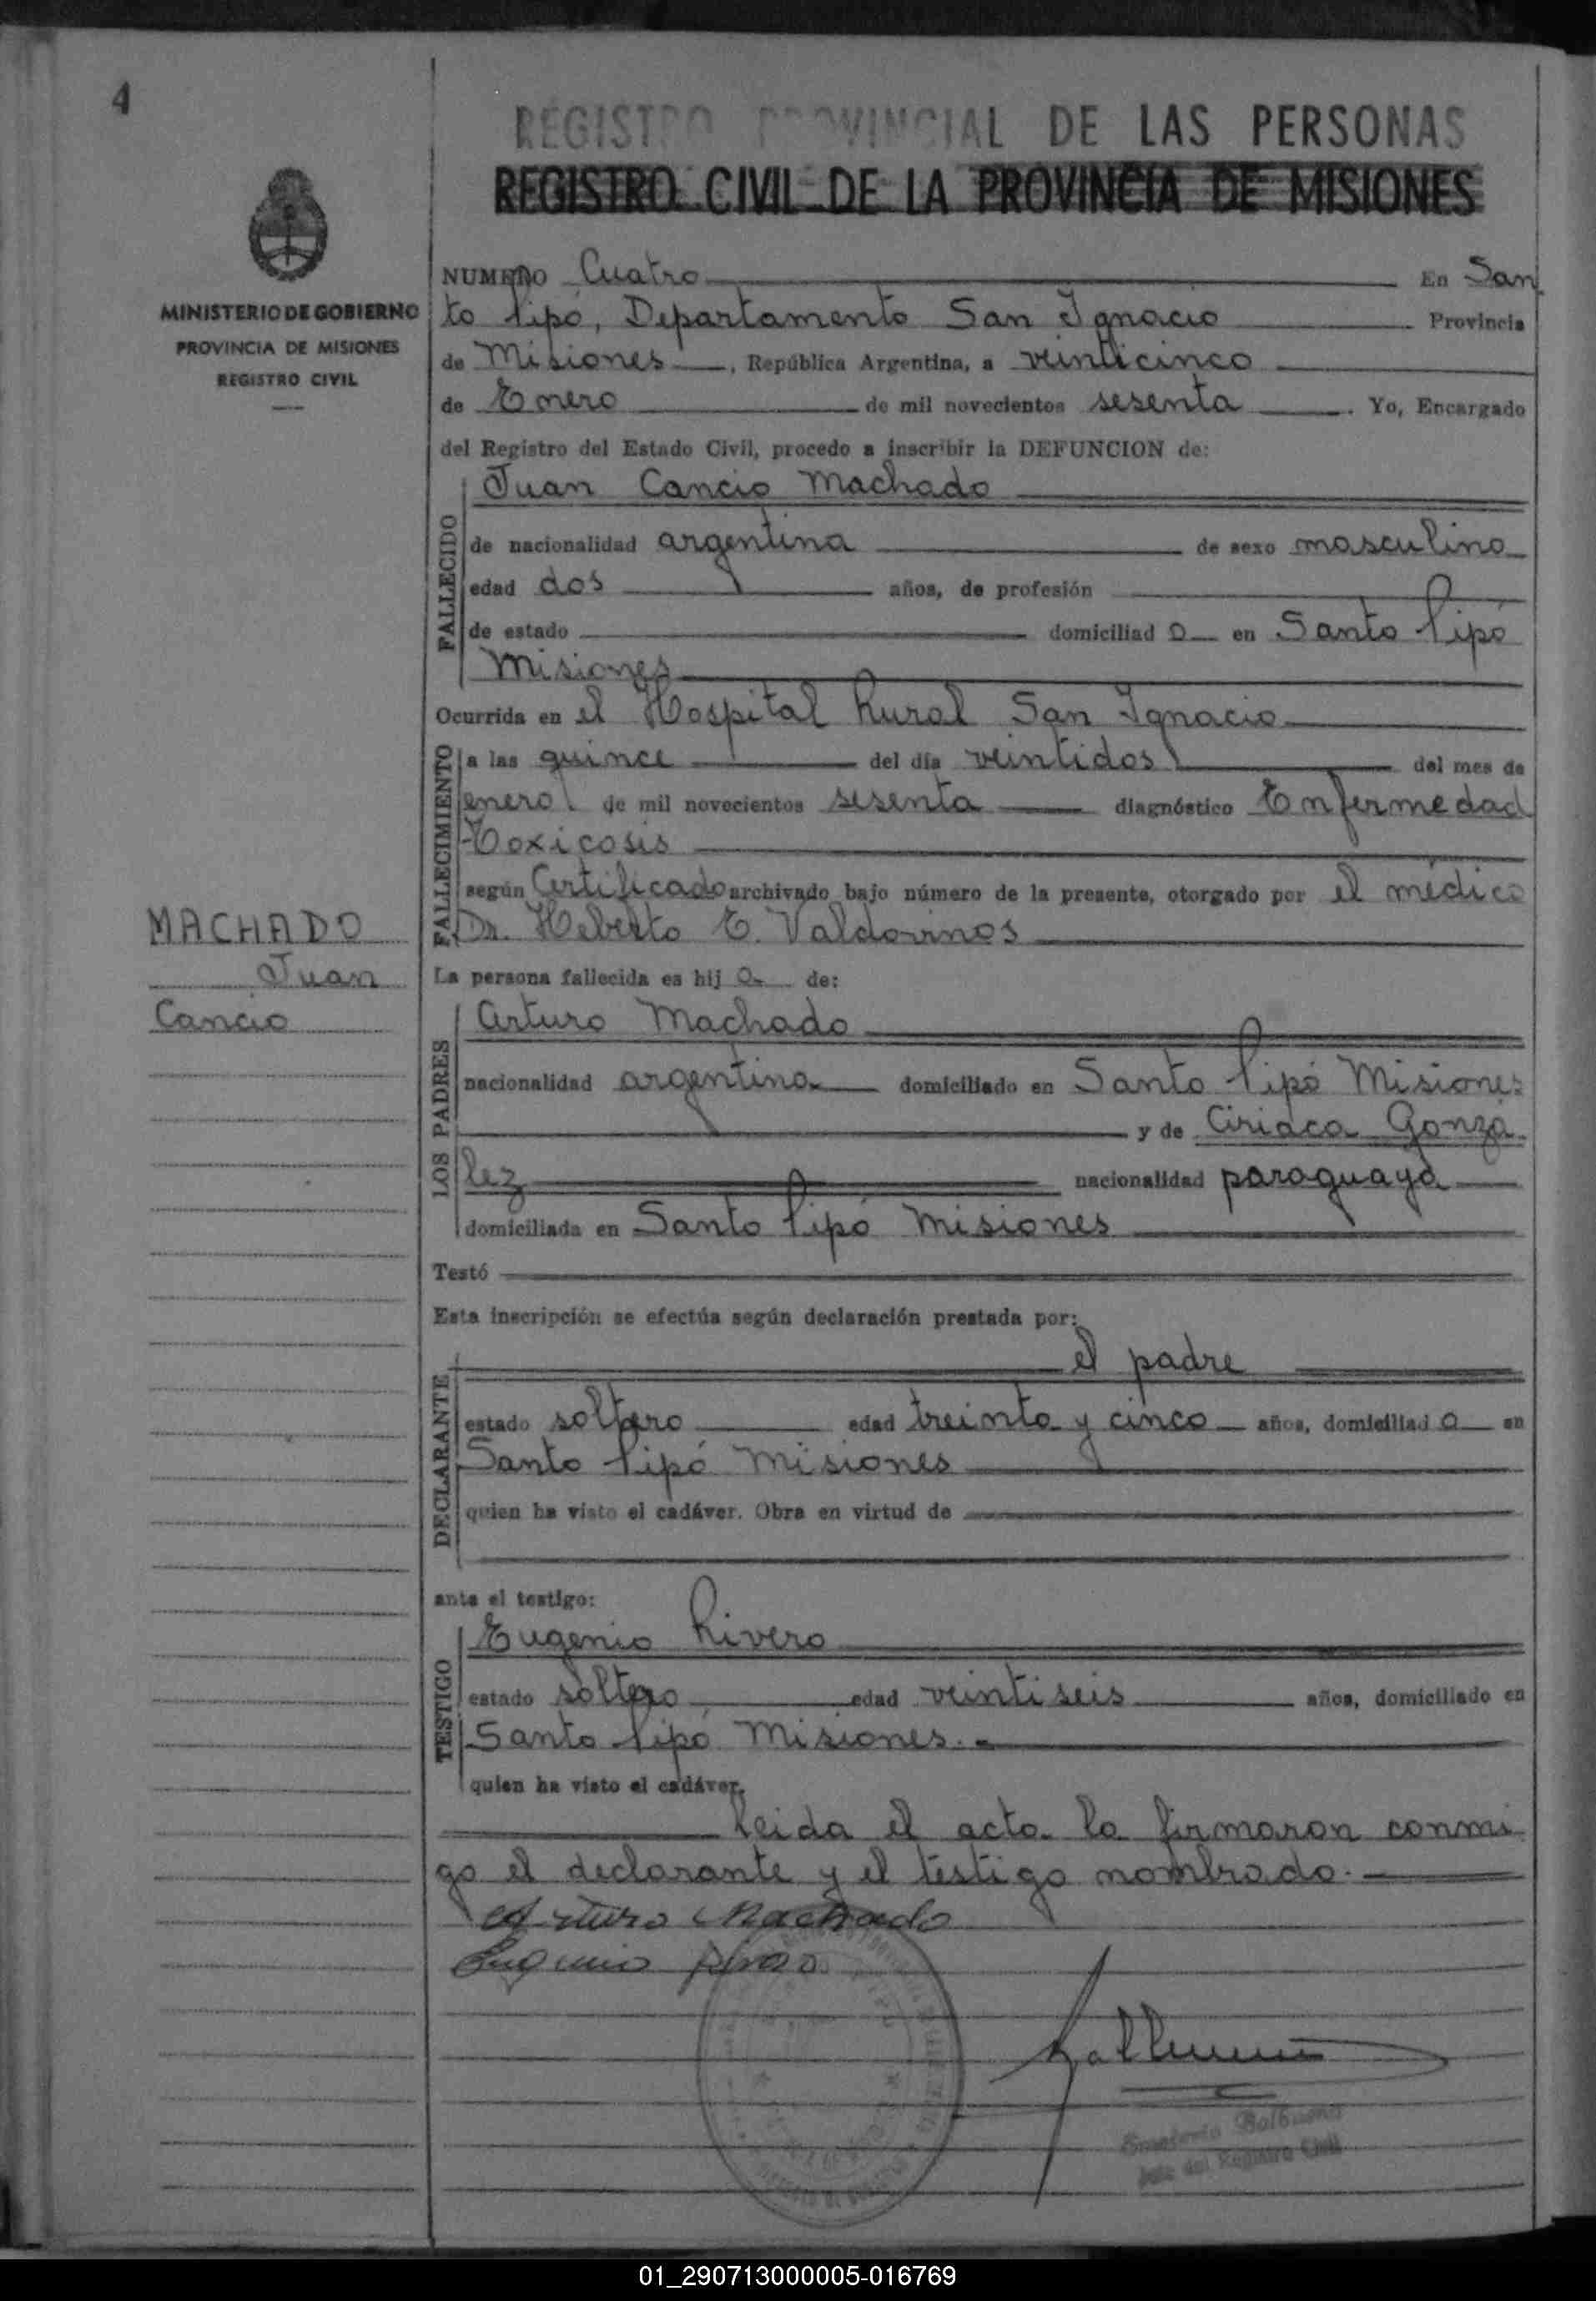 4
REGISTRO PROVINCIAL DE LAS PERSONAS
REGISTRO CIVIL DE LA PROVINCIA DE MISIONES
MINISTERIO DE GOBIERNO
PROVINCIA DE MISIONES
REGISTRO CIVIL
NUMERO Cuatro En San
to Pipó, Departamento San Ignacio Provincia
de Misiones, República Argentina, a veinticinco
de Enero de mil novecientos sesenta. Yo, Encargado
del Registro del Estado Civil, procedo a inscribir la DEFUNCION de:
FALLECIDO
Juan Cancio Machado
de nacionalidad argentina de sexo masculino
edad dos años, de profesión
de estado domiciliad o en Santo Pipó
Misiones
Ocurrida en el Hospital Rural San Ignacio
FALLECIMIENTO
a las quince del día veintidos del mes de
enero de mil novecientos sesenta diagnóstico Enfermedad
Toxicosis
según Certificado archivado bajo número de la presente, otorgado por el médico
Dr. Heberto E. Valdovinos
MACHADO
Juan
Cancio
La persona fallecida es hij o de:
LOS PADRES
Arturo Machado
nacionalidad argentina domiciliado en Santo Pipó Misiones
y de Ciriaca Gonzá
lez nacionalidad paraguaya
domiciliada en Santo Pipó Misiones
Testó
Esta inscripción se efectúa según declaración prestada por:
DECLARANTE
el padre
estado soltero edad treinta y cinco años, domiciliad o en
Santo Pipó Misiones
quien ha visto el cadáver. Obra en virtud de
ante el testigo:
TESTIGO
Eugenio Rivero
estado soltero edad veintiseis años, domiciliado en
Santo Pipó Misiones.-
quien ha visto el cadáver.
Leida el acta la firmaron conmi
go el declarante y el testigo nombrado.
Arturo Machado
Eugenio
Balbuena
Jefe del Registro Civil
01_290713000005-016769